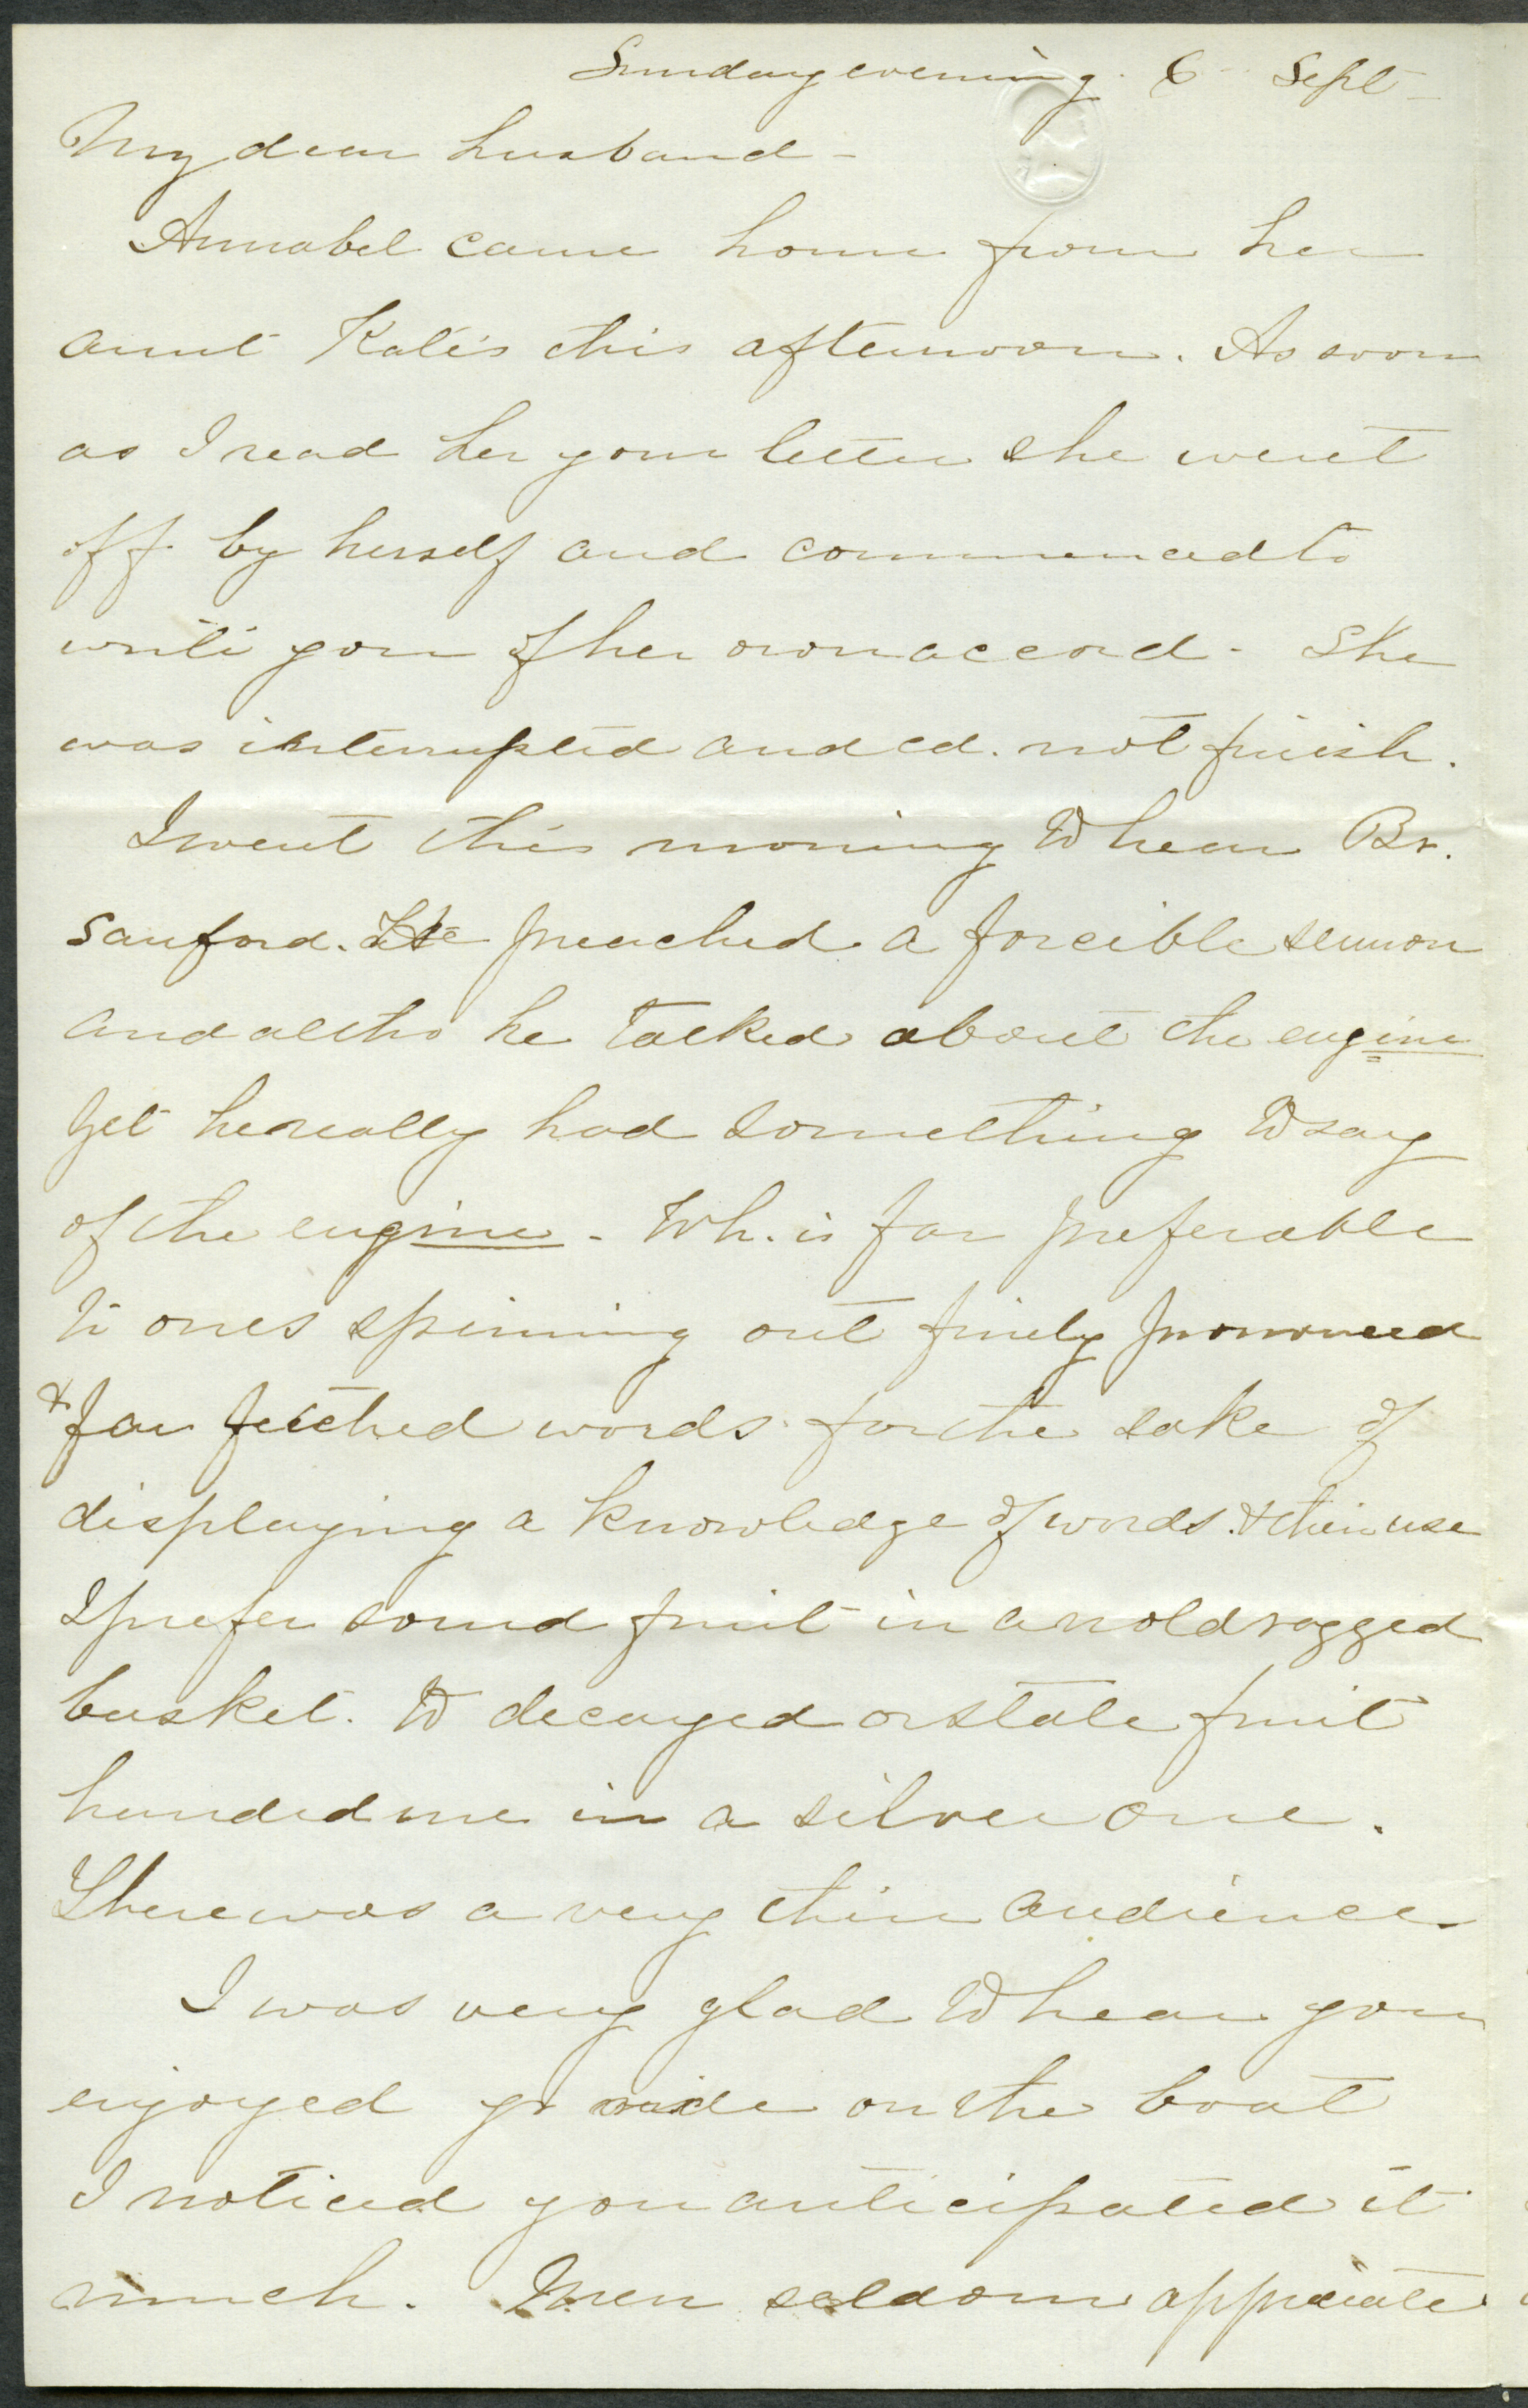 Sunday evening. 6 Sept-
My dear husband -
Annabel came home from her
aunt Kate's this afternoon. As soon
as I read her your letter she went
off by herself and commenced to
write you of her own accord - She
was interrupted and cd. not finish.
I went this morning to hear Br.
Sanford. He preached a forcible sermon
and altho he talked about the engine
yet he really had something to say
of the engine - Wh. is far preferable
to ones spinning out finely pronounced
& far fetched words for the sake of
displaying a knowledge of words. & their use
I prefer sound fruit in an old ragged
basket. to decayed or stale fruit
handed me in a silver one.
There was a very thin audience.
I was very glad to hear you
enjoyed yr ride on the boat
I noticed you anticipated it
much. Men seldom appreciate